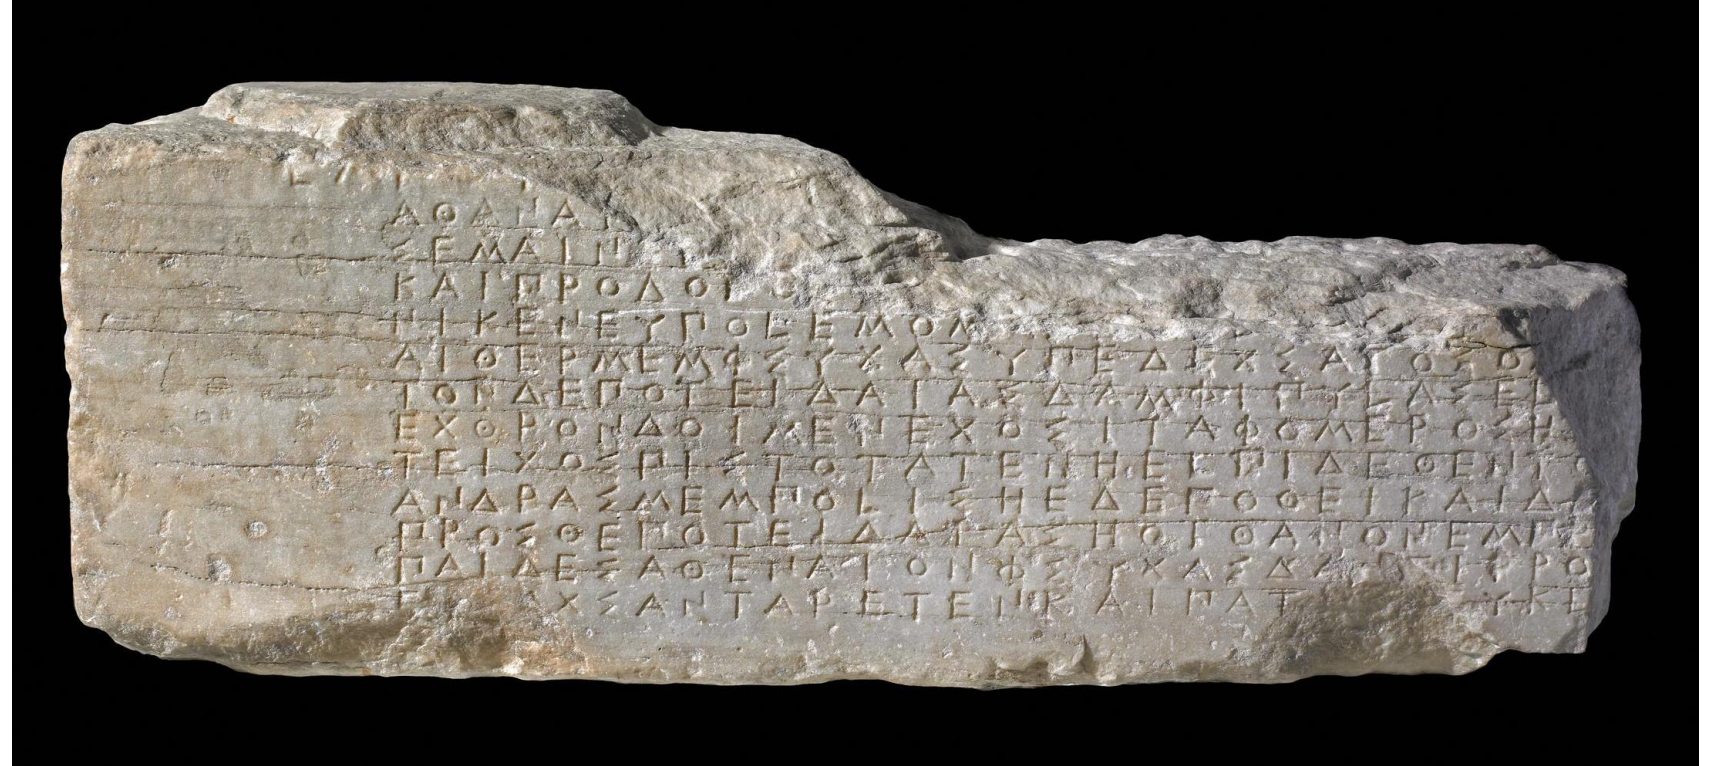 ΑΘΑΝΑ
ΣΕΜΑΙΝ
ΚΑΙΠΡΟΓΟΝ
ΝΙΚΕΝΕΥΠΟΛΕΜΟΜ
ΑΙΘΕΡΜΕΜΦΣΥΧΑΣΥΠΕΔΕΧΣΑΤΟΣΟ
ΤΟΝΔΕΠΟΤΕΙΔΑΙΑΣΔΑΜΦΙΠΥΛΑΣΕΛ
ΕΧΘΡΟΝΔΟΙΜΕΝΕΧΟΣΙΤΑΦΟΜΕΡΟΣΗ
ΤΕΙΧΟΣΠΙΣΤΟΤΑΤΕΝΗΕΛΠΙΔΕΘΕΝΤΟ
ΑΝΔΡΑΣΜΕΜΠΟΛΙΣΗΕΔΕΠΟΘΕΙΚΑΙΔ
ΠΡΟΣΘΕΠΟΤΕΙΔΑΙΑΣΗΟΙΘΑΝΟΝΕΜΠ
ΠΑΙΔΕΣΑΘΕΝΑΙΟΝΦΣΥΧΑΣΔΑΝΤΙΡΡΟ
ΧΣΑΝΤΑΡΕΤΕΝΚΑΙΠΑΤ ΕΥΚΛ